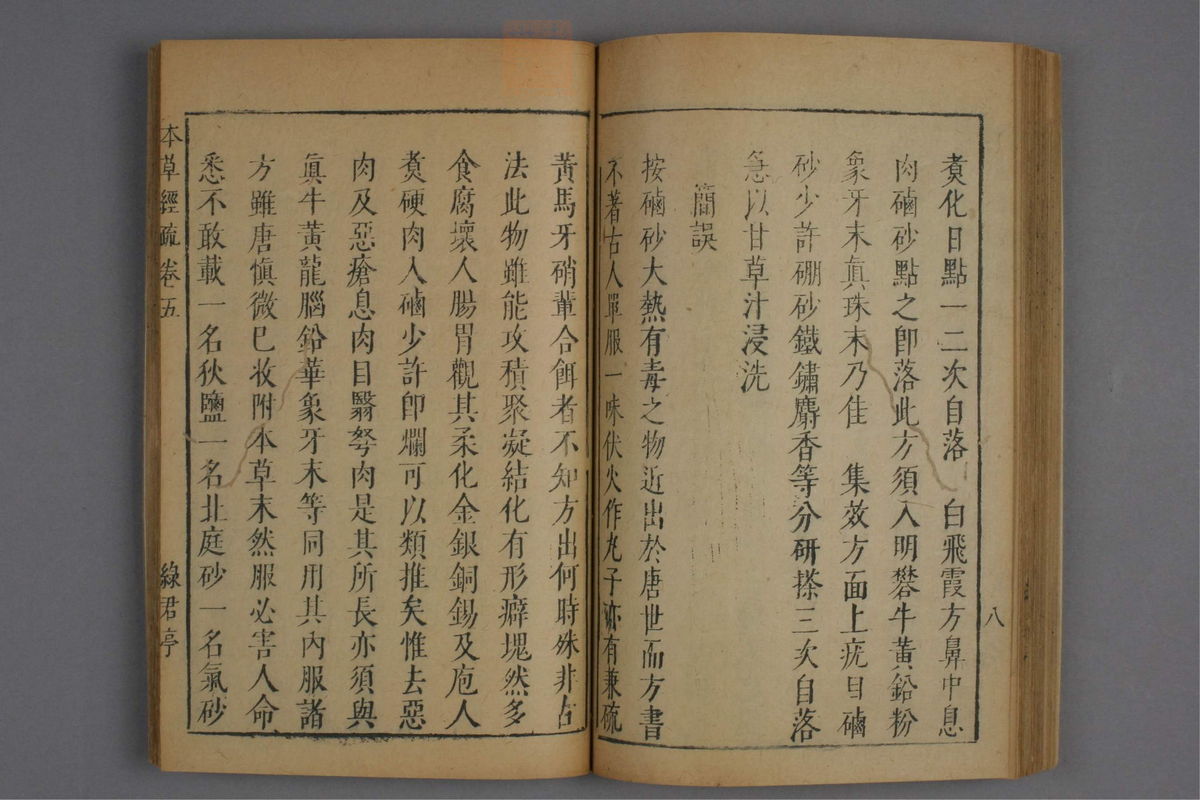 煑化日點一二次自落　白飛霞方鼻中息
肉磠砂點之卽落此方須入明礬牛黃鉛粉
象牙末眞珠末乃佳　集效方面上疣目磠
砂少許硼砂鐵鏽麝香等分研搽三次自落
急以甘草汁浸洗
簡誤
按磠砂大熱有毒之物近出於唐世而方書
不著古人單服一味伏火作丸子亦有兼硫
黃馬牙硝輩合餌者不知方出何時殊非古
法此物雖能攻積聚凝結化有形癖塊然多
食腐壞人腸胃觀其柔化金銀銅錫及庖人
煑硬肉入磠少許卽爛可以類推矣惟去惡
肉及惡瘡息肉目翳胬肉是其所長亦須與
眞牛黃龍腦鉛華象牙末等同用其內服諸
方雖唐愼微已收附本草末然服必害人命
悉不敢載一名狄鹽一名北庭砂一名氣砂
八
本草經疏 卷五
綠君亭